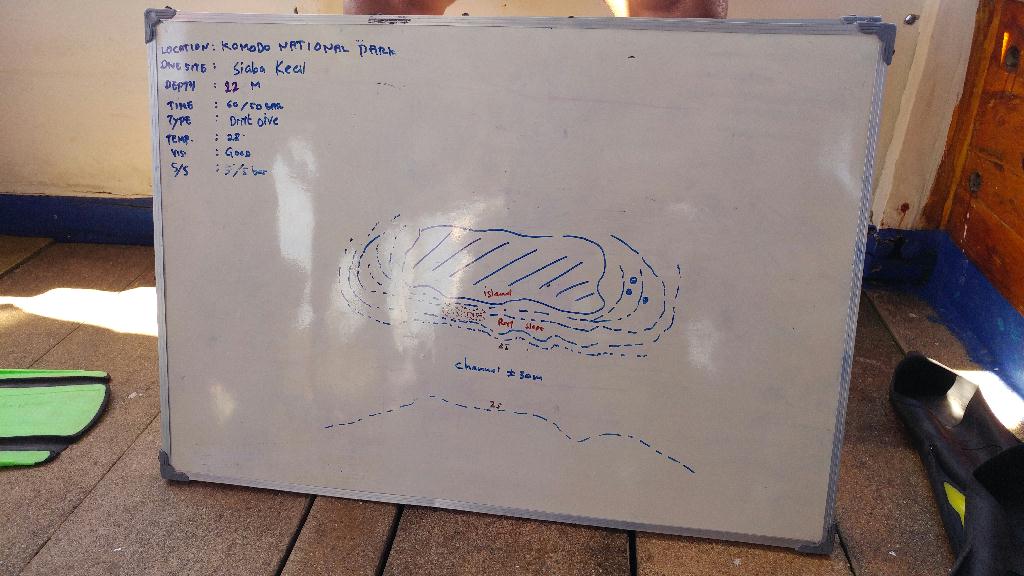 LOCATION : KOMODO NATIONAL PARK
DIVE SITE : Siaba Kecil
DEPTH : 22 M
TIME : 60/50 BAR
TYPE : Drift Dive
TEMP. : 28°
VIS : GOOD
S/S : 5/5 bar
island
Reef slope
25
channel ± 30m
25